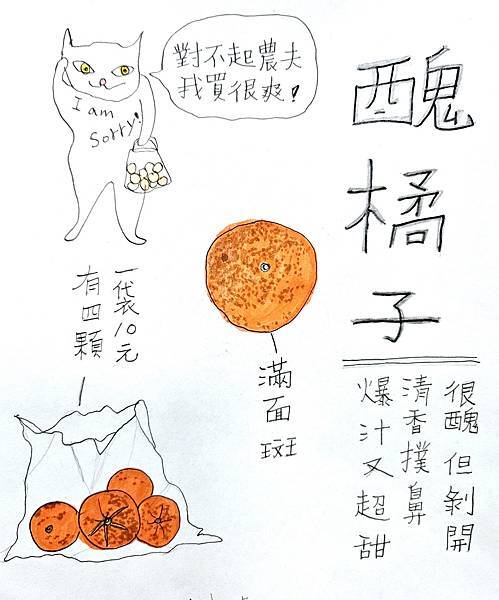 醜橘子
很醜但剝開
清香撲鼻
爆汁又超甜
對不起農夫
我買很爽！
I am
sorry!
滿面斑
一袋10元
有四顆